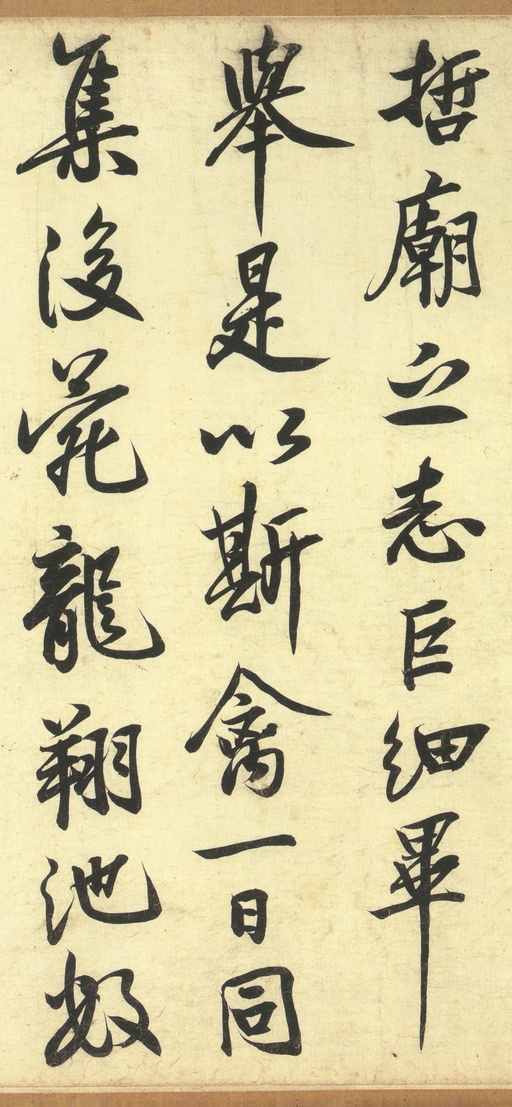 哲廟之志巨細畢
舉是以斯禽一日同
集後苑龍翔池數